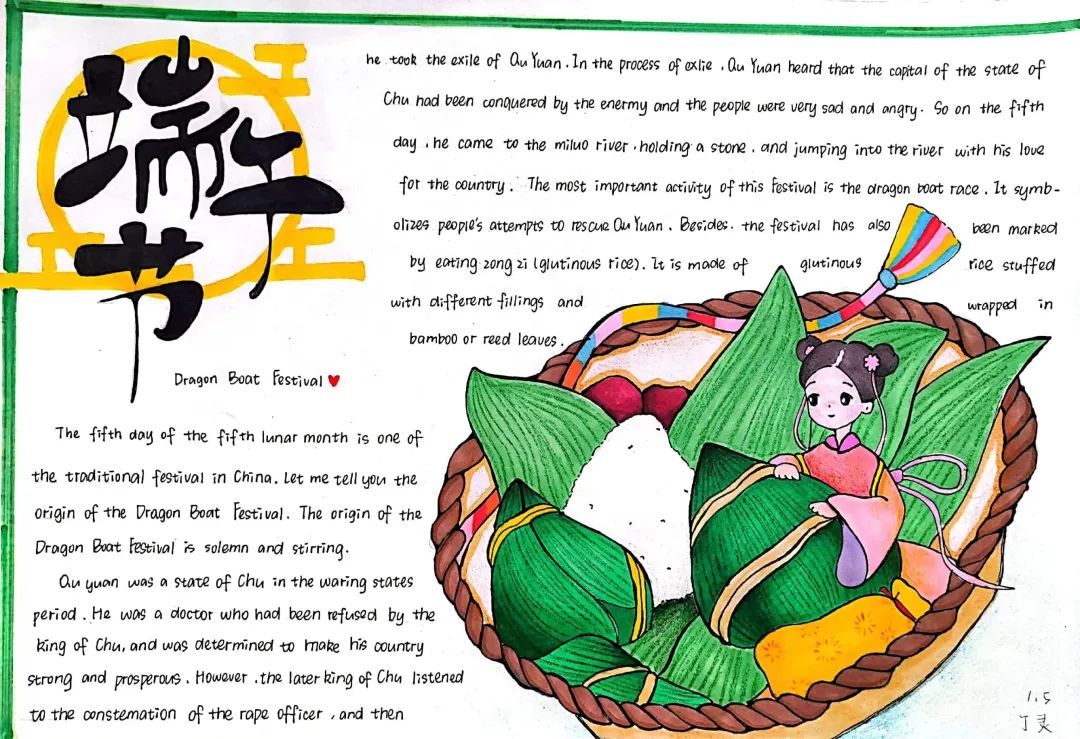 端午节
Dragon Boat Festival
The fifth day of the fifth lunar month is one of
the traditional festival in China. Let me tell you the
origin of the Dragon Boat Festival. The origin of the
Dragon Boat Festival is solemn and stirring.
Qu yuan was a state of Chu in the waring states
period. He was a doctor who had been refused by the
king of Chu, and was determined to make his country
strong and prosperous. However, the later king of Chu listened
to the constemation of the rape officer, and then
he took the exile of Qu Yuan. In the process of exlie, Qu Yuan heard that the capital of the state of
Chu had been conquered by the enermy and the people were very sad and angry. So on the fifth
day, he came to the miluo river, holding a stone, and jumping into the river with his love
for the country. The most important activity of this Festival is the dragon boat race. It symb-
olizes people's attempts to rescue Qu Yuan. Besides, the festival has also been marked
by eating zong zi (glutinous rice). It is made of glutinous rice stuffed
with different fillings and wrapped in
bamboo or reed leaves.
1.5
丁灵